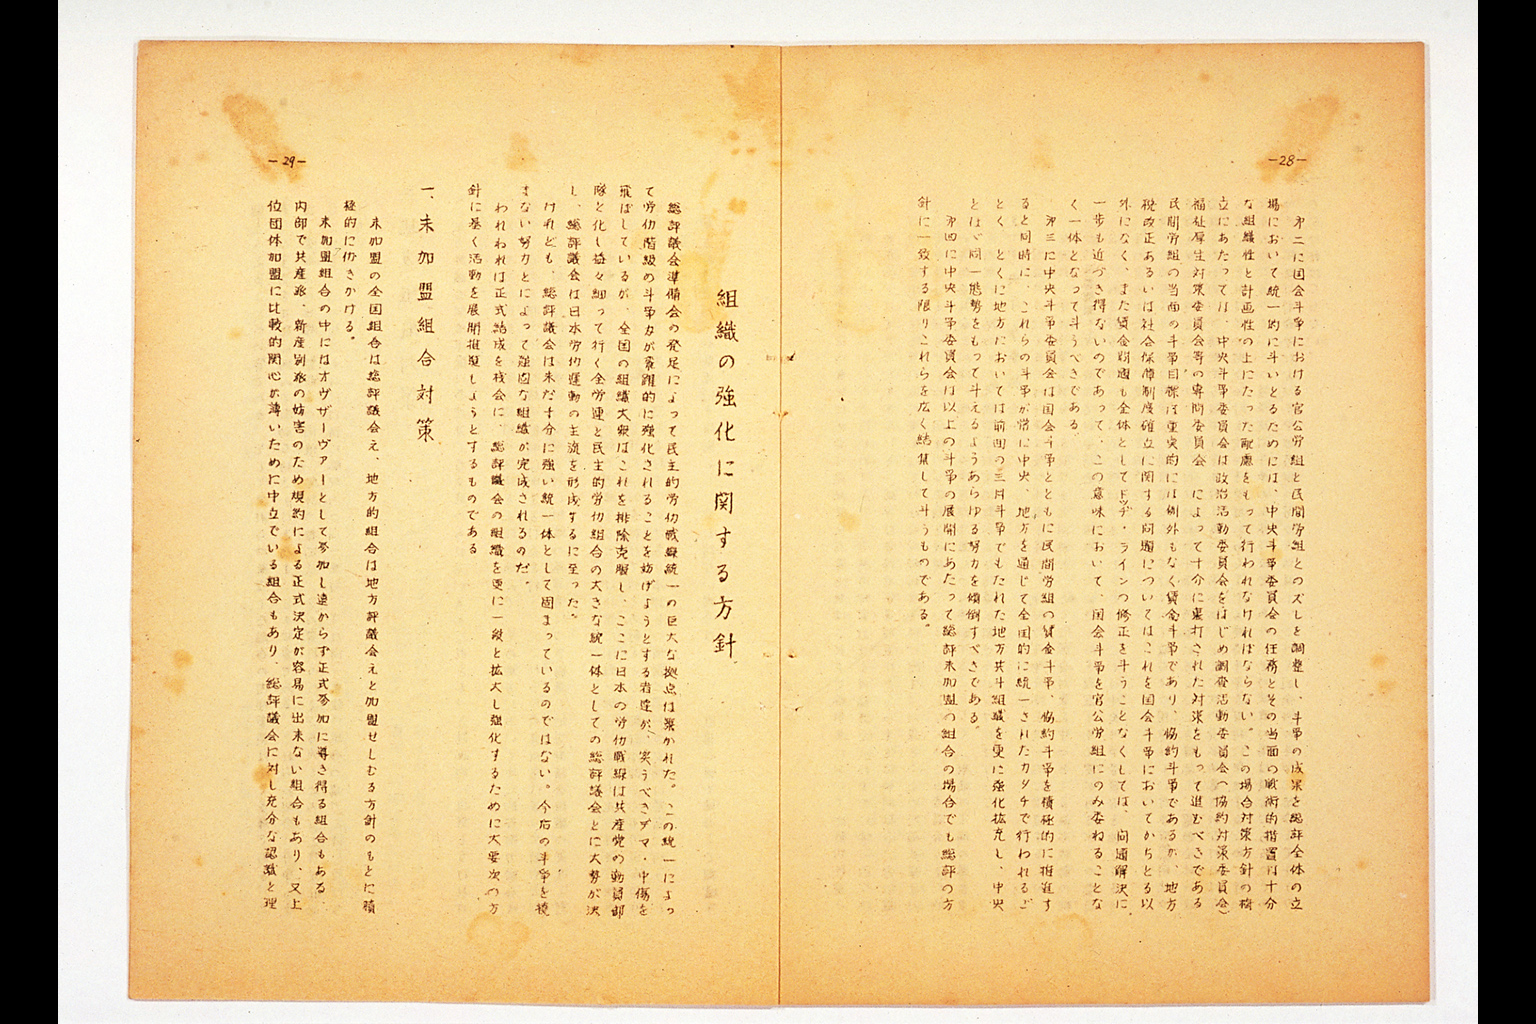 -28-
第二に国会斗争における官公労組と民間労組とのズレを調整し、斗争の成果を総評全体の立
場において統一的に斗いとるためには、中央斗争委員会の任務とその当面の戦術的措置は十分
な組織性と計画性の上にたった配慮をもって行われなければならない。この場合対策方針の樹
立にあたっては、中央斗争委員会は政治活動委員会をはじめ調査活動委員会(協約対策委員会)
福祉厚生対策委員会等の専門委員会 によって十分に裏打された対策をもって進むべきである
民間労組の当面の斗争目標は重実的には例外もなく賃金斗争であり、協約斗争であるが、地方
税改正あるいは社会保障制度確立に関する問題についてはこれを国会斗争においてかちとる以
外になく、また賃金問題も全体としてドッヂ・ラインの修正を斗うことなくしては、問題解決に
一歩も近づき得ないのであって、この意味において、国会斗争を官公労組にのみ委ねることな
く一体となって斗うべきである。
第三に中央斗争委員会は国会斗争とともに民間労組の賃金斗争、協約斗争を積極的に推進す
ると同時に、これらの斗争が常に中央、地方を通じて全国的に統一されたカタチで行われるご
とく、とくに地方においては前回の三月斗争でもたれた地方共斗組織を更に強化拡充し、中央
とほゞ同一態勢をもって斗えるようあらゆる努力を傾倒すべきである。
第四に中央斗争委員会は以上の斗争の展開にあたって総評未加盟の組合の場合でも総評の方
針に一致する限りこれらを広く結集して斗うものである。
-29-
組織の強化に関する方針
総評議会準備会の発足によって民主的労仂戦線統一の巨大な拠点は築かれた。この統一によっ
て労仂階級の斗争力が飛躍的に強化されることを妨げようとする者達が、笑うべきデマ・中傷を
飛ばしているが、全国の組織大衆はこれを排除克服し、ここに日本の労仂戦線は共産党の動員部
隊と化し益々細って行く全労連と民主的労仂組合の大きな統一体としての総評議会とに大勢が決
し、総評議会は日本労仂運動の主流を形成するに至った。
けれども、総評議会は未だ十分に強い統一体として固まっているのではない。今后の斗争と撓
まない努力とによって強固な組織が完成されるのだ。
われわれは正式結成を機会に、総評議会の組織を更に一段と拡大し強化するために大要次の方
針に基く活動を展開推進しようとするものである
一、未加盟組合対策
未加盟の全国組合は総評議会え、地方的組合は地方評議会えと加盟せしむる方針のもとに積
極的に仂きかける。
未加盟組合の中にはオヴザーヴァーとして参加し遠からず正式参加に導き得る組合もある、
内部で共産派、新産別派の妨害のため規約による正式決定が容易に出来ない組合もあり、又上
位団体加盟に比較的関心が薄いために中立でいる組合もあり、総評議会に対し充分な認識と理